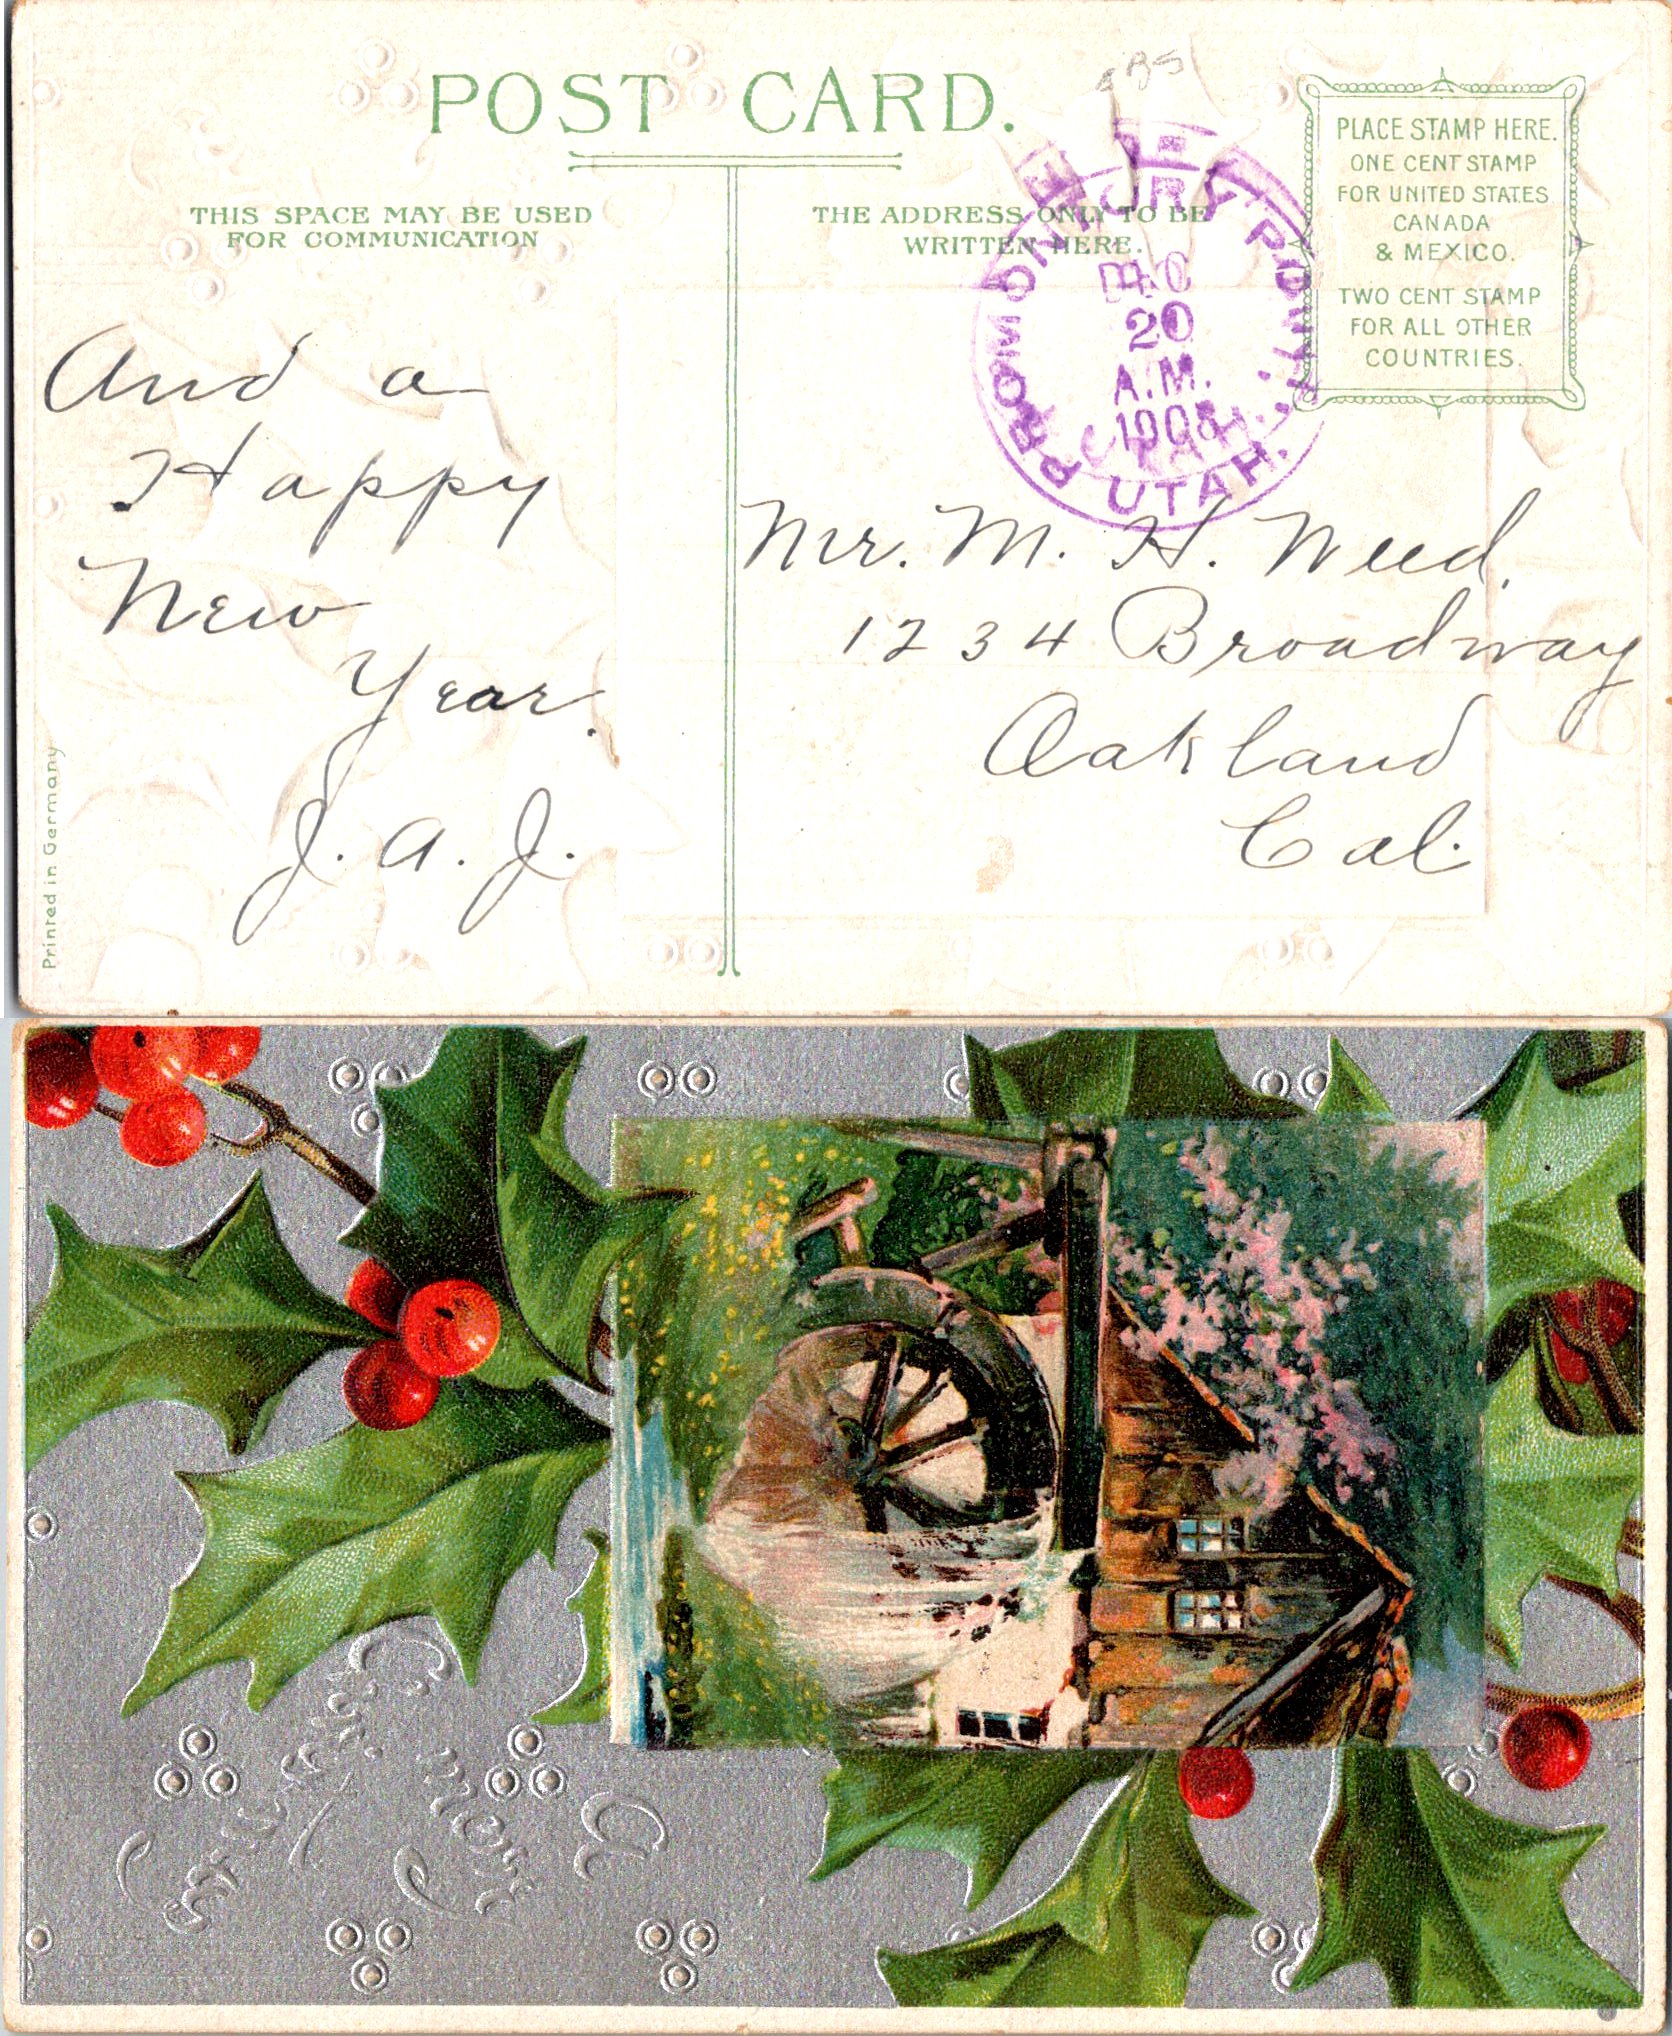 POST CARD.
THIS SPACE MAY BE USED
FOR COMMUNICATION
THE ADDRESS ONLY TO BE
WRITTEN HERE.
PLACE STAMP HERE.
ONE CENT STAMP
FOR UNITED STATES
CANADA
& MEXICO.
TWO CENT STAMP
FOR ALL OTHER
COUNTRIES.
20
A.M.
UTAH.
And a
Happy
New
Year.
J. A. J.
Mr. M. H. Weed.
1234 Broadway
Oakland
Cal.
Printed in Germany
A
Merry
Christmas